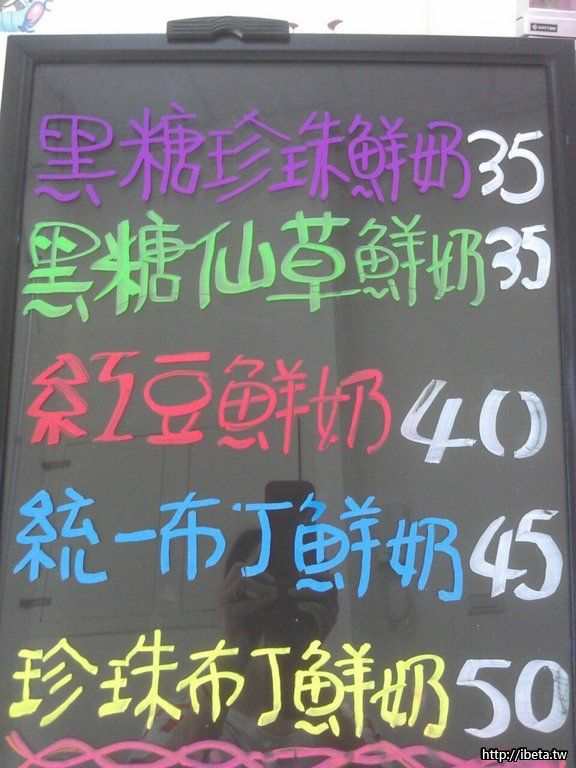 黑糖珍珠鮮奶35
黑糖仙草鮮奶35
紅豆鮮奶40
統一布丁鮮奶45
珍珠布丁鮮奶50
http://ibeta.tw